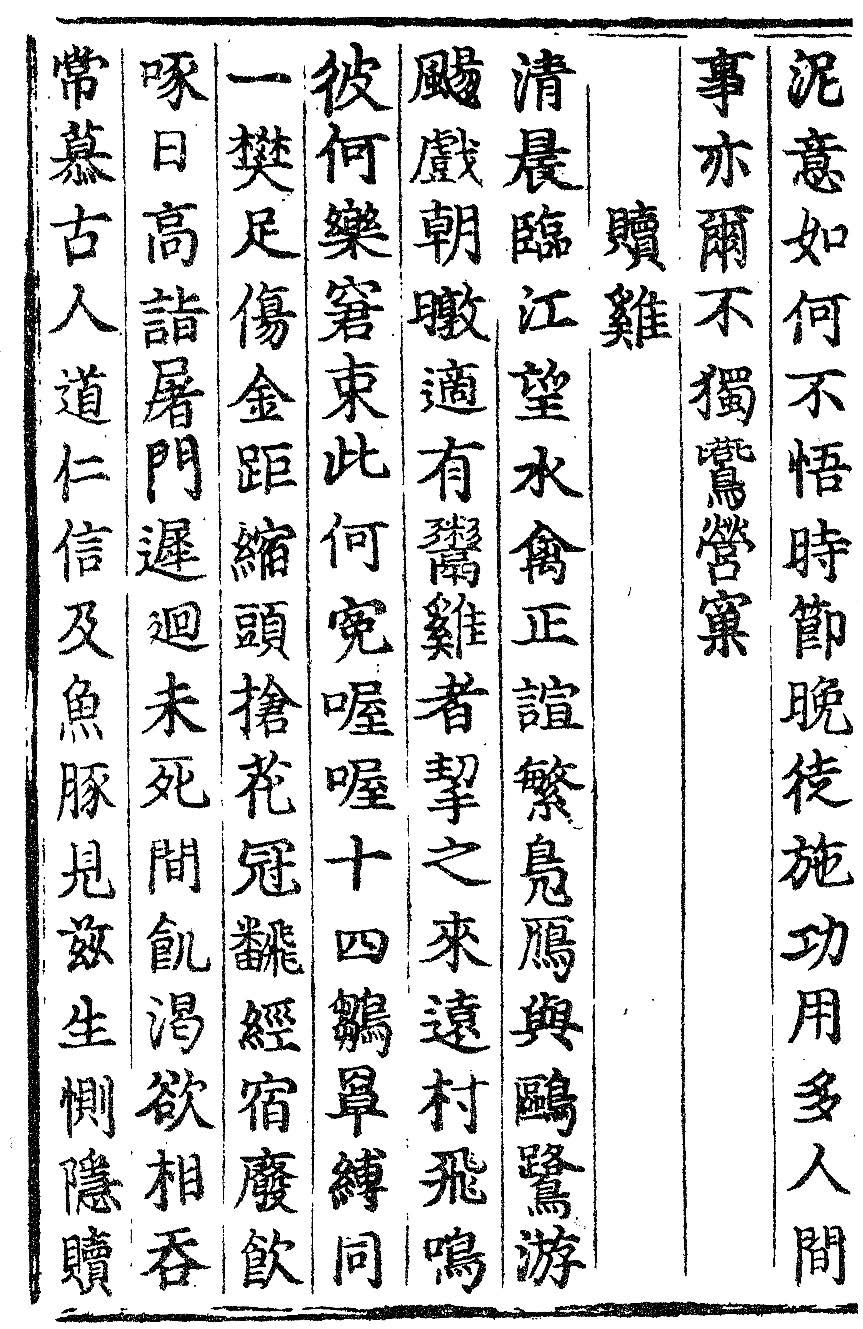 泥意如何不悟時節晚徒施功用多人間
事亦爾不獨鷰營窠
贖雞
清晨臨江望水禽正諠繁鳧鴈與鷗鷺游
颺戲朝暾適有鬻雞者挈之來遠村飛鳴
彼何樂窘束此何冤喔喔十四鶵罩縛同
一樊足傷金距縮頭搶花冠飜經宿廢飲
啄日高詣屠門遲迴未死間飢渴欲相吞
常慕古人道仁信及魚豚見兹生惻隱贖